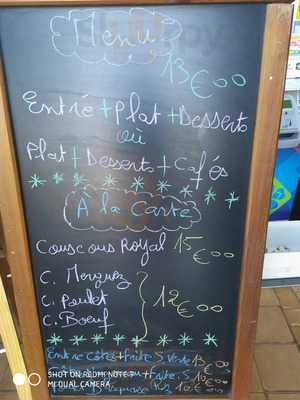 Menu
13€00
Entré + Plat + Desserts
où
Plat + Desserts + Cafés
À la Carte
Couscous Royal 15€00
C. Merguez
C. Poulet
C. Boeuf
12€00
Entre Côtes + Frite S. Verte 13€00
+ Frite S. 10€00
10€00
SHOT ON REDMI NOTE 7
MI DUAL CAMERA